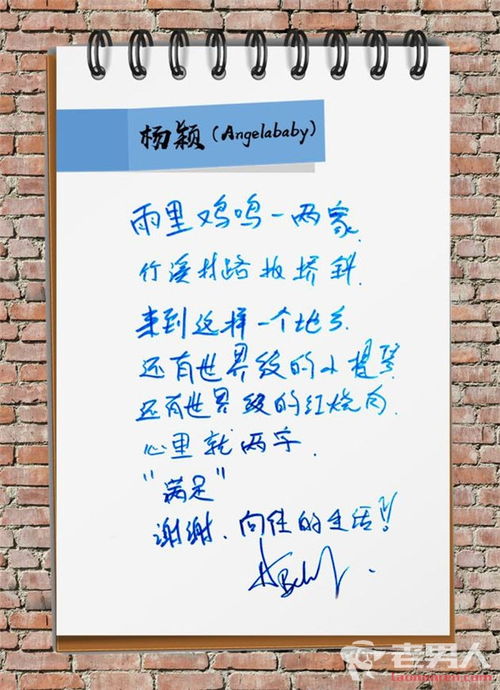 杨颖(Angelababy)
雨里鸡鸣一两家
竹溪村路板桥斜.
来到这样一个地方
还有世界级的小提琴
还有世界级的红烧肉.
心里就两字.
“满足”
谢谢.向往的生活!!
老男人
laonanren.com